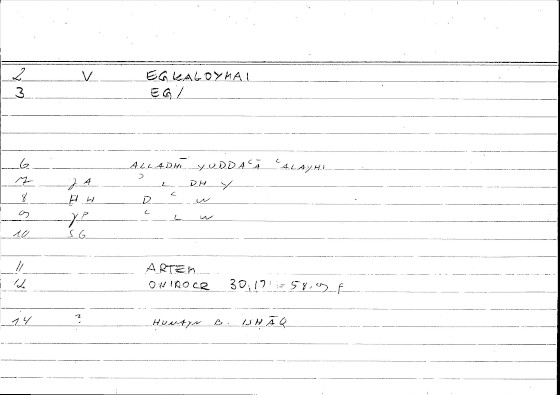 2 V EGKALOYMAI
3 EG/
6 ALLADHĪ YUDDAᶜĀ ᶜALAYHI
7 JA ᵓ L DH Y
8 HW D ᶜ W
9 YP ᶜ L W
10 SG
11 ARTEM
12 ONIROCR 30,17 = 58,9 f
14 ? HUNAYN B. ISHĀQ